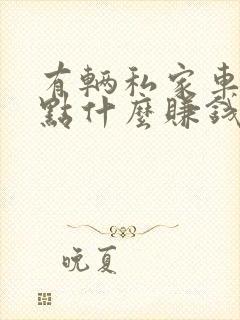 有輛私家車
點什麼賺錢
晚夏